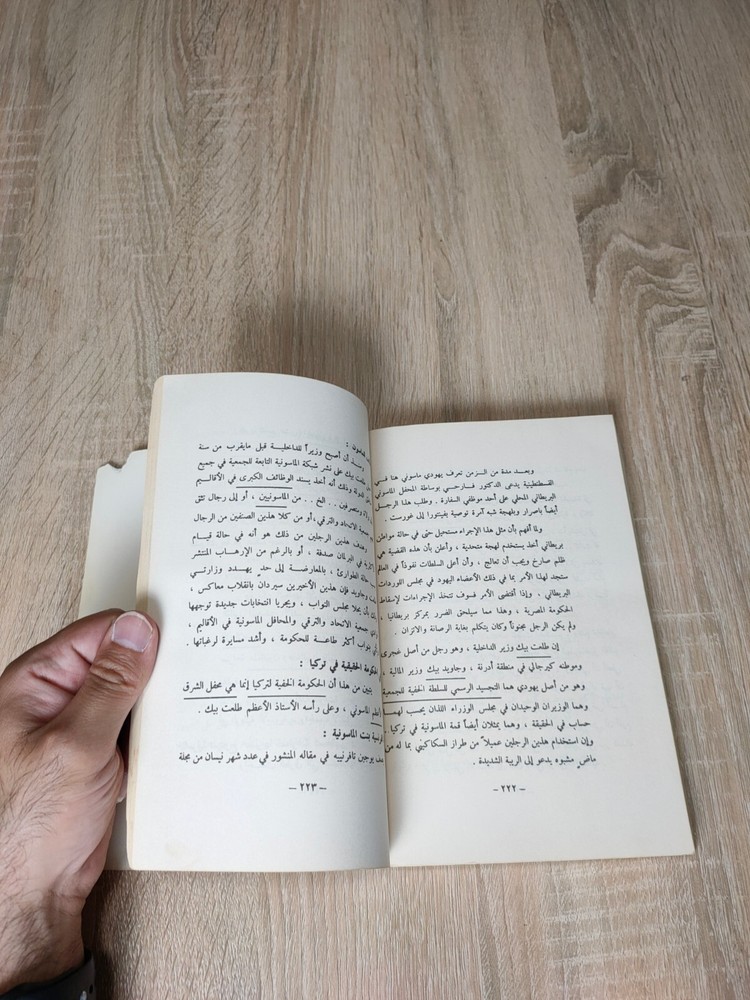 وبعد مدة من الزمن تعرف يهودي ماسوني هنا في
القسطنطينية يدعى الدكتور فارحي بوساطة المحفل الماسوني
البريطاني المحلي على أحد موظفي السفارة . وطلب هذا الرجل
أيضاً باصرار وبلهجة شبه آمرة توصية بفيتورا إلى غورست .
ولما أفهم بأن مثل هذا الإجراء مستحيل حتى في حالة مواطن
بريطاني أخذ يستخدم لهجة متحدية ، وأعلن بأن هذه القضية هي
ظلم صارخ ويجب أن تعالج ، وأن أعلى السلطات نفوذاً في العالم
ستجد لهذا الأمر بما في ذلك الأعضاء اليهود في مجلس اللوردات
البريطاني . وإذا اقتضى الأمر فسوف تتخذ الإجراءات لإسقاط
الحكومة المصرية ، وهذا مما سيلحق الضرر بمركز بريطانيا ،
ولم يكن الرجل مجنوناً وكان يتكلم بغاية الرصانة والاتزان .
إن طلعت بيك وزير الداخلية ، وهو رجل من أصل غجري
وموطنه كيرجالي في منطقة أدرنة ، وجاويد بيك وزير المالية ،
وهو من أصل يهودي هما التجسيد الرسمي للسلطة الخفية للجمعية
وهما الوزيران الوحيدان في مجلس الوزراء اللذان يحسب لهما
حساب في الحقيقة ، وهما يمثلان أيضاً قمة الماسونية في تركيا .
وإن استخدام هذين الرجلين عميلاً من طراز السكاكيني بما له من
ماض مشبوه يدعو إلى الريبة الشديدة .
– ٢٢٢ –
أن أصبح وزيراً للداخلية قبل مايقرب من سنة
طلعت بيك على نشر شبكة الماسونية التابعة للجمعية في جميع
الدولة وذلك أنه أخذ يسند الوظائف الكبرى في الأقاليم
ومتصرفين .. الخ .. من الماسونيين ، أو إلى رجال تثق
جمعية الاتحاد والترقي، أو من كلا هذين الصنفين من الرجال
وهدف هذين الرجلين من ذلك هو أنه في حالة قيام
في البرلمان صدفة ، أو بالرغم من الإرهاب المنتشر
حالة الطوارئ ، بالمعارضة إلى حد يهدد وزارتي
وجاويد، فإن هذين الأخيرين سيردان بانقلاب معاكس ،
بأن يحلا مجلس النواب ، ويجريا انتخابات جديدة توجهها
جمعية الاتحاد والترقي والمحافل الماسونية في الأقاليم ،
بنواب أكثر طاعة للحكومة ، وأشد مسايرة لرغباتها .
الحكومة الحقيقية في تركيا :
يتبين من هذا أن الحكومة الخفية لتركيا إنما هي محفل الشرق
الأعظم الماسوني ، وعلى رأسه الأستاذ الأعظم طلعت بيك .
بنت الماسونية :
يوجين تافرنييه في مقاله المنشور في عدد شهر نيسان من مجلة
– ٢٢٣ –